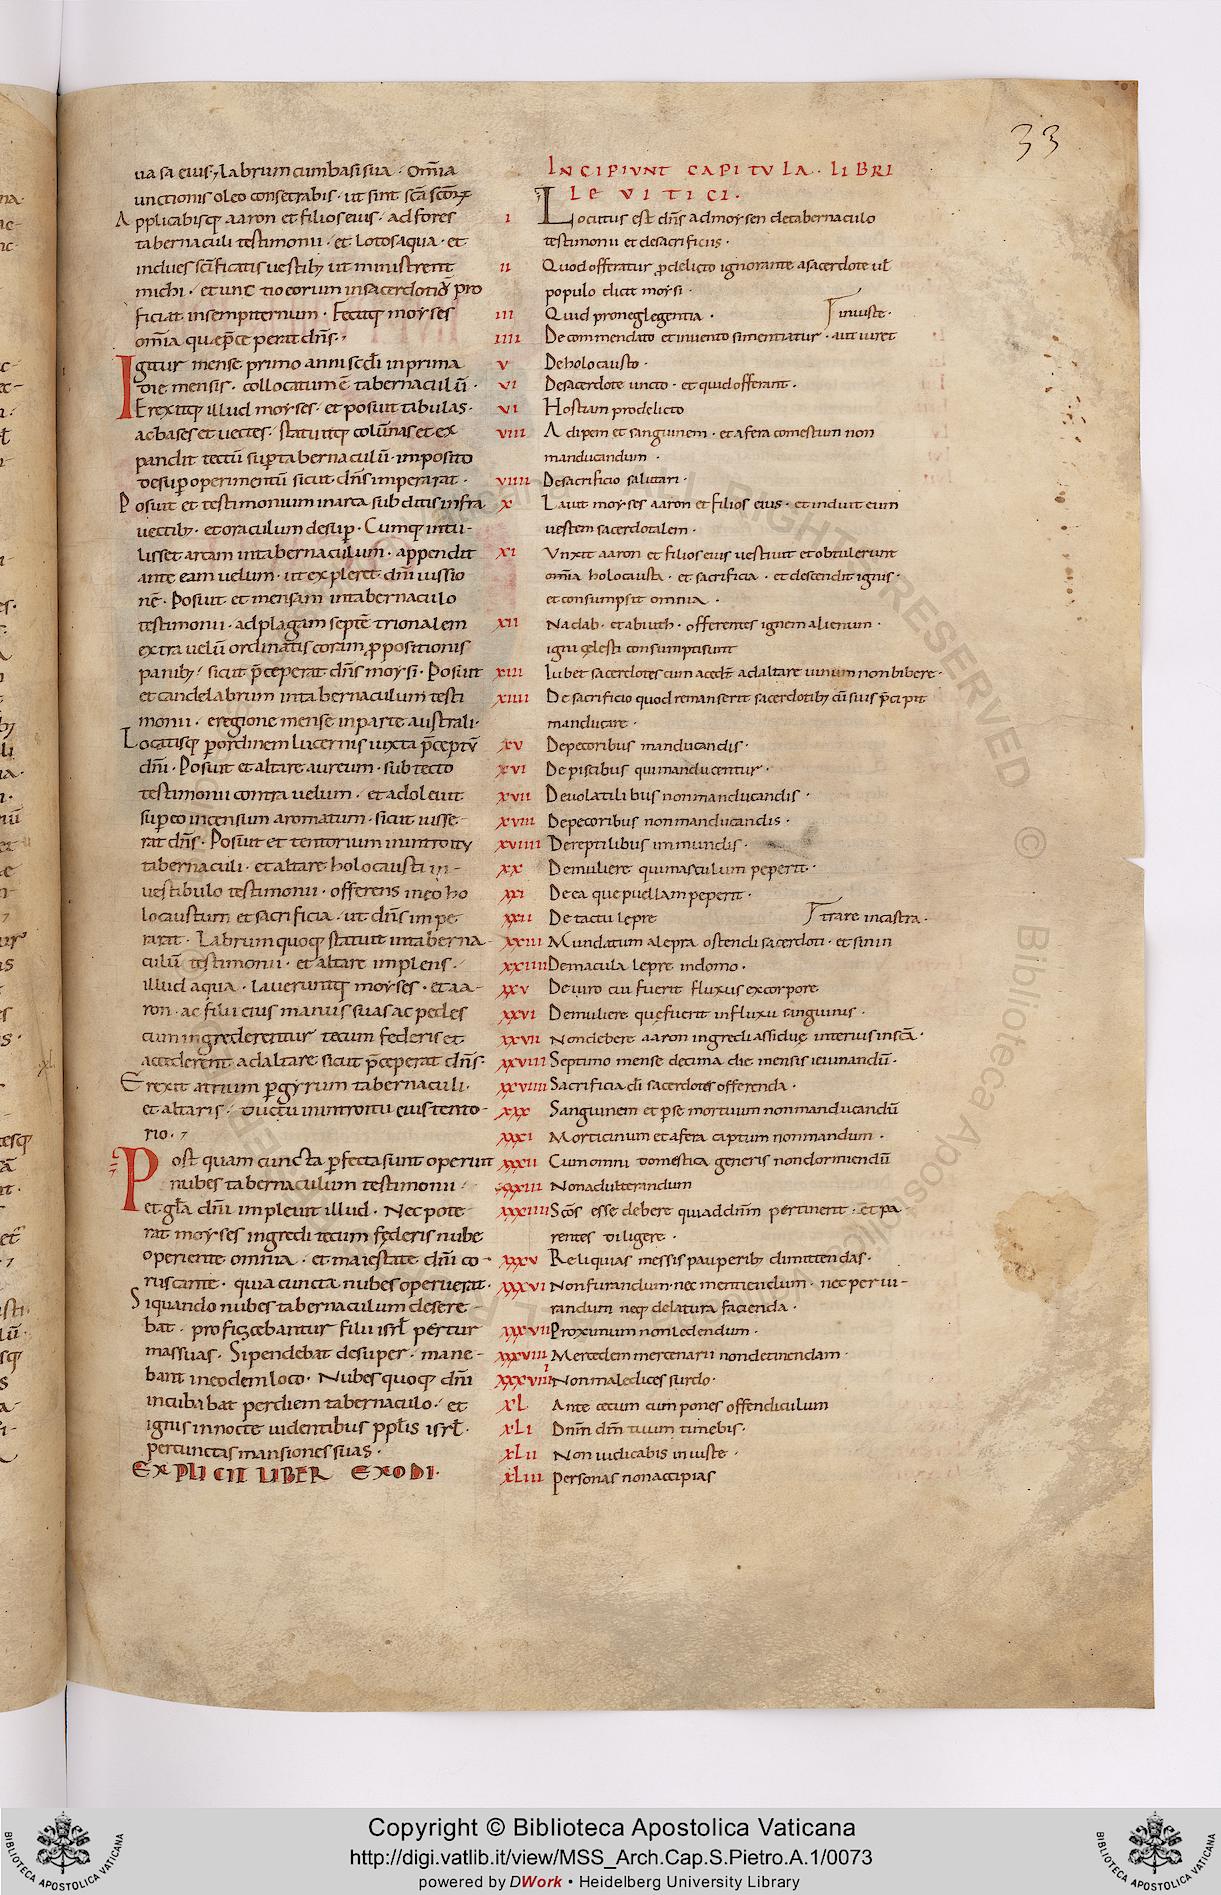 33
uasa eius ⁊ labrum cum basi sua · Om̅ia
unctionis oleo consecrabis · ut sint sc̅a sc̅oꝝ
Applicabisq; aaron et filios eius · ad fores
tabernaculi testimonii · et lotos aqua · et
indues sc̅ificatis uestib; ut ministrent
michi · et unctio eorum in sacerdotiū pro
ficiat in sempiternum · Fecitq; moyses
om̅ia quę p̅ceperat dn̅s ·
Igitur mense primo anni sc̅di in prima
die mensis · collocatum ē tabernaculū ·
Erexitq; illud moyses · et posuit tabulas ·
ac bases et uectes · Statuitq; colūnas et ex
pandit tectū sup̱ tabernaculū · imposito
desup̱ operimentū sicut dn̅s imperarat ·
Posuit et testimonium in arca subditis infra
uectib; · et oraculum desup̱ · Cumq; intu-
lisset arcam in tabernaculum · appendit
ante eam uelum · ut expleret dn̅i iussio
nē · Posuit et mensam in tabernaculo
testimonii · ad plagam septētrionalem
extra uelū ordinatis coram p̱positionis
panib; · sicut p̅ceperat dn̅s moysi · Posuit
et candelabrum in tabernaculum testi
monii · e regione mense in parte australi ·
Locatisq; p̱ ordinem lucernis iuxta p̅ceptū
dn̅i · Posuit et altare aureum · sub tecto
testimonii contra uelum · et adoleuit
sup̱ eo incensum aromatum · sicut iusse-
rat dn̅s · Posuit et tentorium in introitu
tabernaculi · et altare holocausti in-
uestibulo testimonii · offerens in eo ho
locaustum et sacrificia · ut dn̅s impe
rarat · Labrum quoq; statuit in taberna-
culū testimonii · et altare implens ·
illud aqua · Laueruntq; moyses · et aa-
ron · ac filii eius manus suas ac pedes
cum ingrederentur tectum federis et
accederent ad altare sicut p̅ceperat dn̅s ·
Erexit atrium p̱ gyrum tabernaculi ·
et altaris · ductu in introitu eius tento-
rio ·
Postquam cuncta p̱fecta sunt operuit
nubes tabernaculum testimonii ·
et gl̅a dn̅i impleuit illud · Nec pote-
rat moyses ingredi tectum fęderis nube
operiente omnia · et maiestate dn̅i co-
ruscante · quia cuncta nubes operuerat ·
Siquando nubes tabernaculum desere-
bat · proficiscebantur filii isrl̅ per tur
mas suas · Si pendebat desuper · mane-
bant in eodem loco · Nubes quoq; dn̅i
incubabat per diem tabernaculo · et
ignis in nocte uidentibus pp̅lis isrl̅ ·
per cunctas mansiones suas ·
EXPLICIT LIBER EXODI ·
INCIPIUNT CAPITULA · LIBRI
LEVITICI ·
I Locutus est dn̅s ad moysen de tabernaculo
testimonii et de sacrificiis ·
II Quod offeratur p̱ delicto ignorante a sacerdote ul̅
populo dicit moysi ·
III Quid pro neglegentia · iniuste ·
IIII De commendato et inuento si mentiatur · aut iuret
V De holocausto ·
VI De sacerdote uncto · et quid offerant ·
VI Hostiam pro delicto
VIII Adipem et sanguinem · et a fera comestum non
manducandum ·
VIIII De sacrificio salutari ·
X Lauit moyses aaron et filios eius · et induit eum
uestem sacerdotalem ·
XI Unxit aaron et filios eius uestiuit et obtulerunt
om̅ia holocausta · et sacrificia · et descendit ignis ·
et consumpsit omnia ·
XII Nadab · et abiuth · offerentes ignem alienum ·
igni cęlesti consumpti sunt
XIII Iubet sacerdotes cum acced̅t ad altare uinum non bibere ·
XIIII De sacrificio quod remanserit sacerdotib; cū suis p̅cipit
manducare ·
XV De pecoribus manducandis ·
XVI De piscibus qui manducentur ·
XVII De uolatilibus non manducandis ·
XVIII De pecoribus non manducandis ·
XVIIII De reptilibus immundis ·
XX De muliere qui masculum peperit ·
XXI De ea que puellam peperit ·
XXII De tactu lepre trare in castra ·
XXIII Mundatum a lepra ostendi sacerdoti · et sic in
XXIIII De macula lepre in domo ·
XXV De uiro cui fuerit fluxus ex corpore
XXVI De muliere quę fuerit in fluxu sanguinis ·
XXVII Non debere aaron ingredi assiduę interius in sc̅a ·
XXVIII Septimo mense decima die mensis ieiunandū ·
XXVIIII Sacrificia di̅ sacerdotes offerenda ·
XXX Sanguinem et p̱ se mortuum non manducandū
XXXI Morticinum et a fera captum non mandum ·
XXXII Cum omni domestica generis non dormiendū
XXXIII Non adulterandum
XXXIIII Sc̅os esse debere qui ad dn̅m pertinent · et pa
rentes diligere ·
XXXV Reliquias messis pauperib; dimittendas ·
XXXVI Non furandum nec mentiendum · nec per iu-
randum neq; delatura facienda ·
XXXVII Proximum non ledendum ·
XXXVIII Mercedem mercenarii non detinendam ·
XXXVIIII Non maledices surdo ·
XL Ante cecum cum pones offendiculum
XLI Dn̅m dm̅ tuum timebis ·
XLII Non iudicabis iniuste ·
XLIII Personas non accipias
Copyright © Biblioteca Apostolica Vaticana
http://digi.vatlib.it/view/MSS_Arch.Cap.S.Pietro.A.1/0073
powered by DWork • Heidelberg University Library